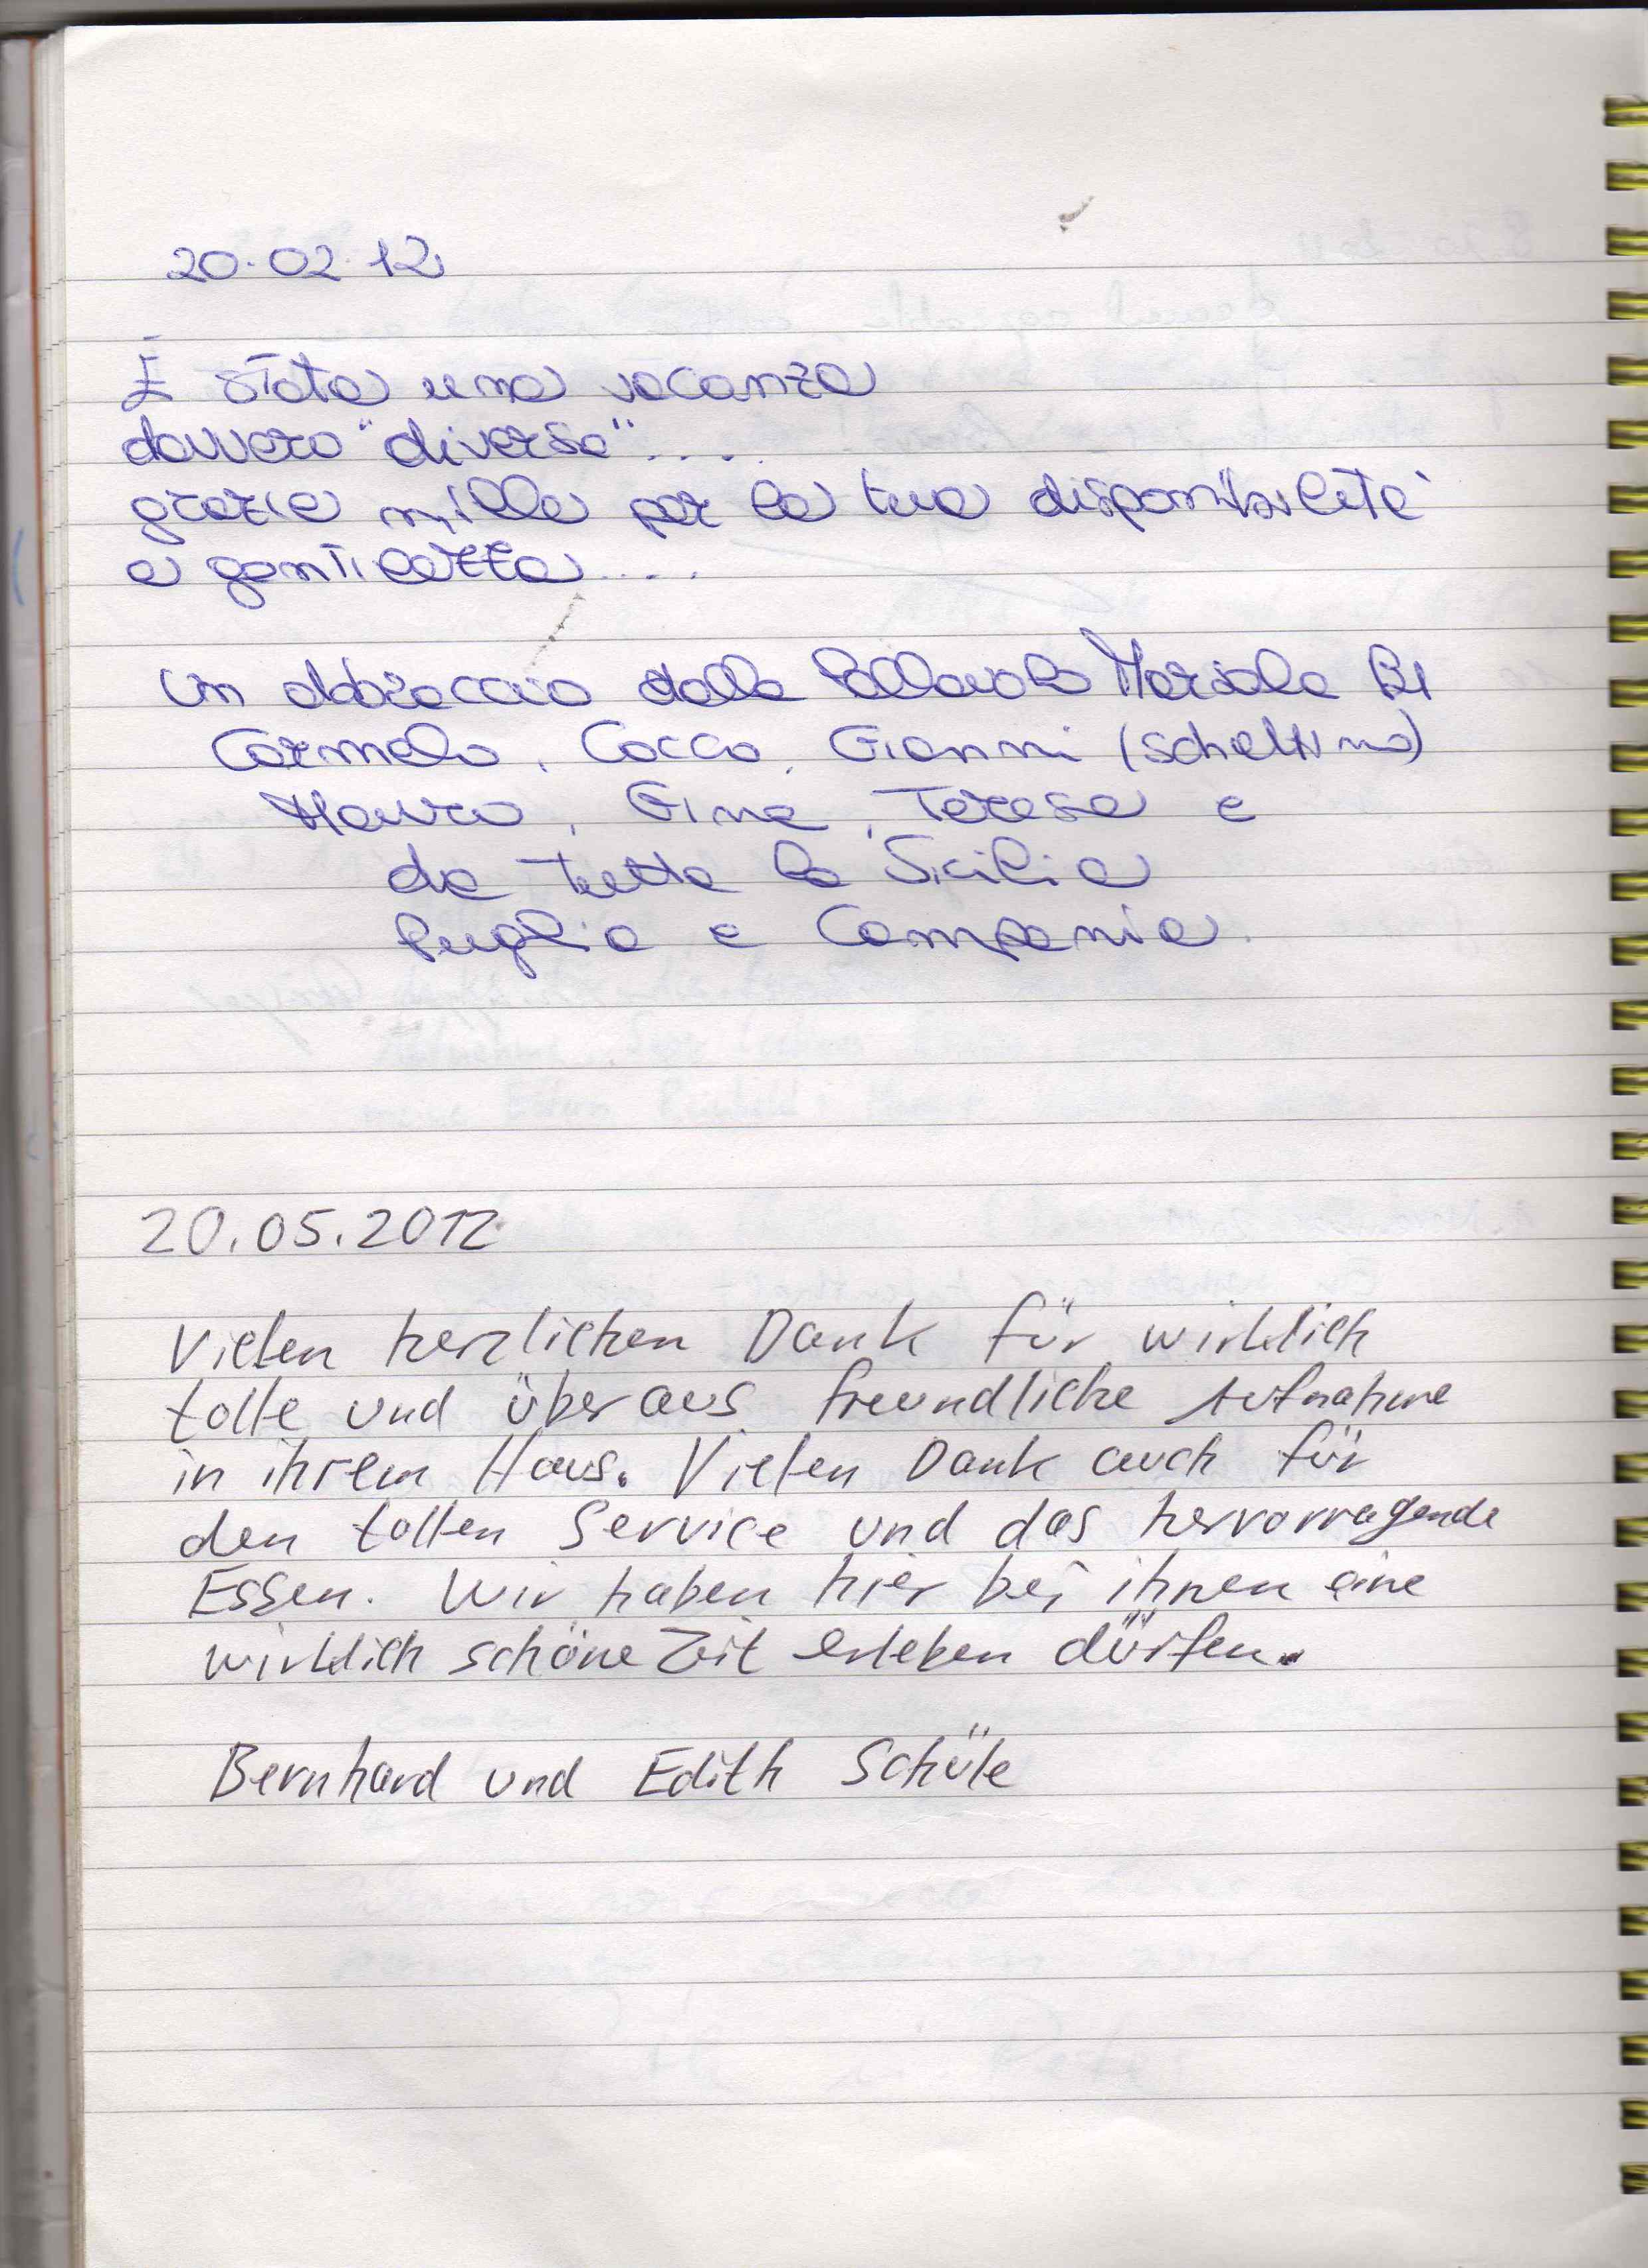 20.02.12
È stata una vacanza
davvero "diversa".....
grazie mille per la tua disponibilità
e gentilezza....
Un abbraccio dalla Pallavolo Marsala B1
Carmelo, Cocco, Gianni (schettino)
Mauro, Gina, Teresa e
da tutta la Sicilia
Puglia e Campania.
20.05.2012
Vielen herzlichen Dank für wirklich
tolle und überaus freundliche Aufnahme
in ihrem Haus. Vielen Dank auch für
den tollen Service und das hervorragende
Essen. Wir haben hier bei ihnen eine
wirklich schöne Zeit erleben dürfen.
Bernhard und Edith Schüle